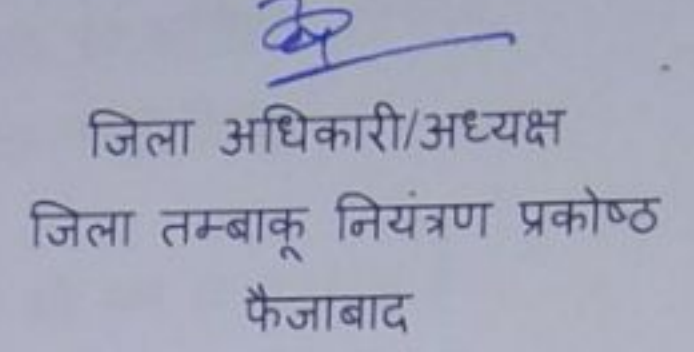 जिला अधिकारी/अध्यक्ष
जिला तम्बाकू नियंत्रण प्रकोष्ठ
फैजाबाद